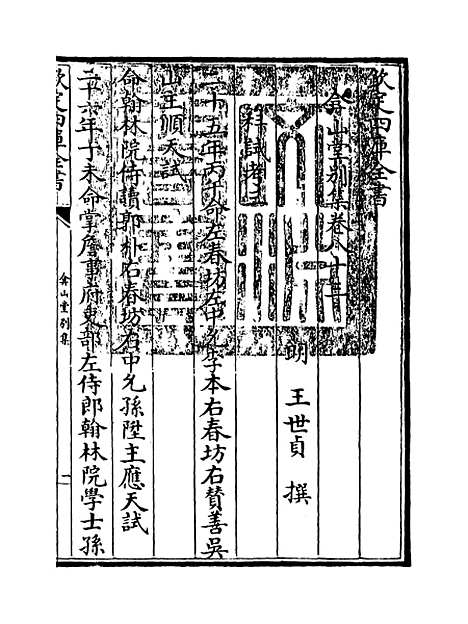 欽定四庫全書
弇山堂別集卷八十三
明 王世貞 撰
科試考三
二十五年丙午命左春坊左中允李本右春坊右賛善吳
山主順天試
命翰林院侍讀郭朴右春坊右中允孫陞主應天試
二十六年丁未命掌詹事府吏部左侍郎翰林院學士孫
欽定四庫全書
弇山堂別集